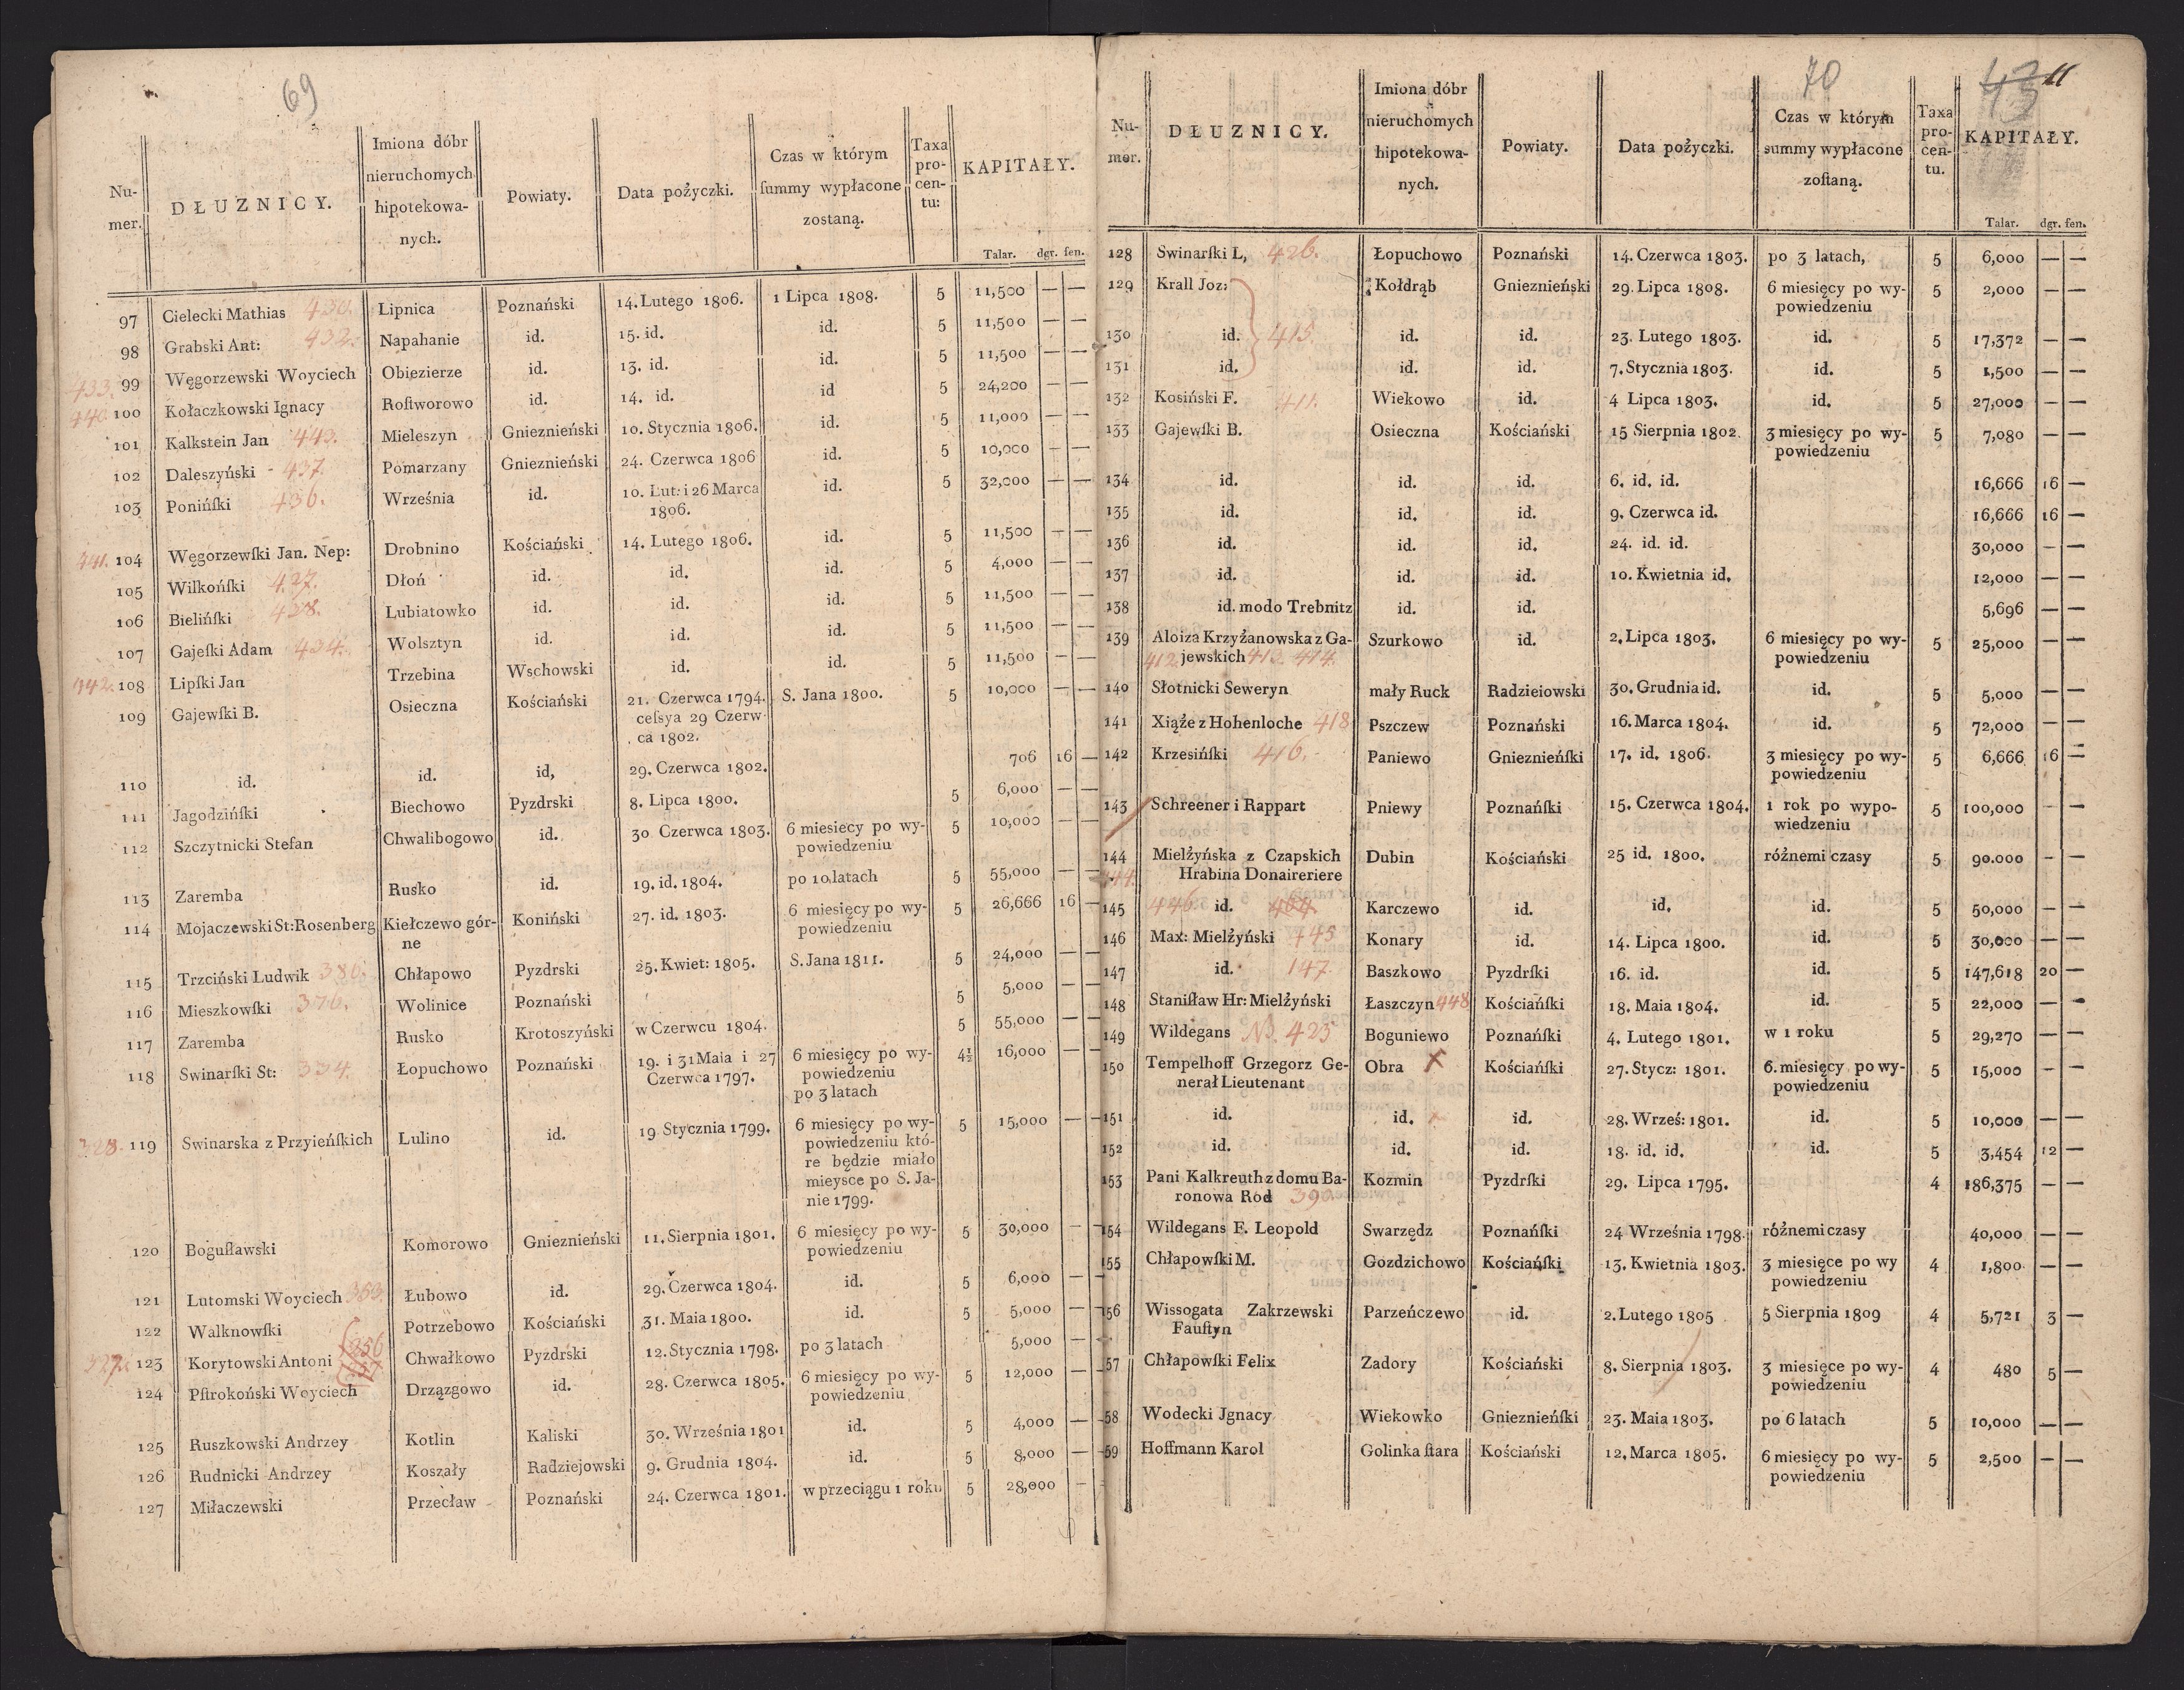 69
Nu-mer. | DŁUZNICY. | Imiona dóbr nieruchomych hipotekowa-nych. | Powiaty. | Data pożyczki. | Czas w którym ſummy wypłacone zostaną. | Taxa pro-cen-tu: | KAPITAŁY. Talar. dgr. fen.
97 Cielecki Mathias 430. Lipnica Poznański 14. Lutego 1806. 1 Lipca 1808. 5 11,500 — —
98 Grabski Ant: 432. Napahanie id. 15. id. id. 5 11,500 — —
433. 99 Węgorzewski Woyciech Obiezierze id. 13. id. id. 5 11,500 — —
440. 100 Kołaczkowski Ignacy Roſtworowo id. 14. id. id 5 24,200 — —
101 Kalkstein Jan 443. Mieleszyn Gnieznieński 10. Stycznia 1806. id. 5 11,000 — —
102 Daleszyński - 437. Pomarzany Gnieznieński 24. Czerwca 1806 id. 5 10,000 — —
103 Ponińſki 436. Września id. 10. Lut: i 26 Marca id. 5 32,000 — —
1806.
441. 104 Węgorzewſki Jan. Nep: Drobnino Kościański 14. Lutego 1806. id. 5 11,500 — —
105 Wilkońſki 427. Dłoń id. id. id. 5 4,000 — —
106 Bielińſki 428. Lubiatowko id. id. id. 5 11,500 — —
107 Gajeſki Adam 434. Wolsztyn id. id. id. 5 11,500 — —
442. 108 Lipſki Jan Trzebina Wschowski id. id. 5 11,500 — —
109 Gajewſki B. Osieczna Kościański 21. Czerwca 1794. S. Jana 1800. 5 10,000 — —
ceſsya 29 Czerw-
ca 1802.
110 id. id. id, 29. Czerwca 1802. 706 16 —
111 Jagodzińſki Biechowo Pyzdrski 8. Lipca 1800. 5 6,000 — —
112 Szczytnicki Stefan Chwalibogowo id. 30 Czerwca 1803. 6 miesiecy po wy- 5 10,000 — —
powiedzeniu
113 Zaremba Rusko id. 19. id. 1804. po 10 latach 5 55,000 — —
114 Mojaczewski St: Rosenberg Kiełczewo gór- Koniński 27. id. 1803. 6 miesięcy po wy- 5 26,666 16 —
ne powiedzeniu
115 Trzciński Ludwik 380. Chłapowo Pyzdrski 25. Kwiet: 1805. S. Jana 1811. 5 24,000 — —
116 Mieszkowſki 376. Wolinice Poznański 5 5,000 — —
117 Zaremba Rusko Krotoszyński w Czerwcu 1804. 5 55,000 — —
118 Swinarſki St: 334. Łopuchowo Poznański 19. i 31 Maia i 27 6 miesięcy po wy- 4½ 16,000 — —
Czerwca 1797. powiedzeniu
po 3 latach
328. 119 Swinarska z Przyieńſkich Lulino id. 19 Stycznia 1799. 6 miesięcy po wy- 5 15,000 — —
powiedzeniu któ-
re będzie miało
mieysce po S. Ja-
nie 1799.
120 Boguſławski Komorowo Gnieznieński 11. Sierpnia 1801. 6 miesięcy po wy- 5 30,000 — —
powiedzeniu
121 Lutomski Woyciech 363 Łubowo id. 29. Czerwca 1804. id. 5 6,000 — —
122 Walknowſki Potrzebowo Kościański 31. Maia 1800. id. 5 5,000 — —
327. 123 Korytowski Antoni 356 357 Chwałkowo Pyzdrski 12. Stycznia 1798. po 3 latach 5,000 — —
124 Pſtrokoński Woyciech Drzązgowo id. 28. Czerwca 1805. 6 miesięcy po wy- 5 12,000 — —
powiedzeniu
125 Ruszkowski Andrzey Kotlin Kaliski 30. Września 1801 id. 5 4,000 — —
126 Rudnicki Andrzey Koszały Radziejowski 9. Grudnia 1804. id. 5 8,000 — —
127 Miłaczewski Przecław Poznański 24. Czerwca 1801. w przeciągu 1 roku 5 28,000 —
70
43 11
Nu-mer. | DŁUZNICY. | Imiona dóbr nieruchomych hipotekowa-nych. | Powiaty. | Data pożyczki. | Czas w którym summy wypłacone zoſtaną. | Taxa pro-cen-tu. | KAPITAŁY. Talar. dgr. fen.
128 Swinarſki L, 426. Łopuchowo Poznański 14. Czerwca 1803. po 3 latach, 5 6,000 — —
129 Krall Joz: Kołdrąb Gnieznieński 29. Lipca 1808. 6 miesięcy po wy- 5 2,000 — —
powiedzeniu
130 id. 415. id. id. 23. Lutego 1803. id. 5 17,372 — —
131 id. id. id. 7. Stycznia 1803. id. 5 1,500 — —
132 Kosiński F. 411. Wiekowo id. 4 Lipca 1803. id. 5 27,000 — —
133 Gajewſki B. Osieczna Kościański 15 Sierpnia 1802. 3 miesięcy po wy- 5 7,080 — —
powiedzeniu
134 id. id. id. 6. id. id. 16,666 16 —
135 id. id. id. 9. Czerwca id. 16,666 16 —
136 id. id. id. 24. id. id. 30,000 — —
137 id. id. id. 10. Kwietnia id. 12,000 — —
138 id. modo Trebnitz id. id. 5,696 — —
139 Aloiza Krzyżanowska z Ga- Szurkowo id. 2. Lipca 1803. 6 miesięcy po wy- 5 25,000 — —
412. jewskich 413. 414. powiedzeniu
140 Słotnicki Seweryn mały Ruck Radzieiowski 30. Grudnia id. id. 5 5,000 — —
141 Xiąże z Hohenloche 418 Pszczew Poznański 16. Marca 1804. id. 5 72,000 — —
142 Krzesińſki 416. Paniewo Gnieznieńſki 17. id. 1806. 3 miesięcy po wy- 5 6,666 16 —
powiedzeniu
143 Schreener i Rappart Pniewy Poznańſki 15. Czerwca 1804. 1 rok po wypo- 5 100,000 — —
wiedzeniu
144 Mielżyńska z Czapskich Dubin Kościański 25 id. 1800. różnemi czasy 5 90.000 — —
444. Hrabina Donaireriere
145 446. id. 464. Karczewo id. id. id. 5 50,000 — —
146 Max: Mielżyński 445 Konary id. 14. Lipca 1800. id. 5 30,000 — —
147 id. 147. Baszkowo Pyzdrſki 16. id. id. 5 147,618 20 —
148 Staniſław Hr: Mielżyński Łaszczyn 448 Kościańſki 18. Maia 1804. id. 5 22,000 — —
149 Wildegans N3. 423 Boguniewo Poznańſki 4. Lutego 1801. w 1 roku 5 29,270 — —
150 Tempelhoff Grzegorz Ge- Obra Kościańſki 27. Stycz: 1801. 6. miesięcy po wy- 5 15,000 — —
nerał Lieutenant powiedzeniu
151 id. id. id. 28. Wrześ: 1801. id. 5 10,000 — —
152 id. id. id. 18. id. id. id. 5 3,454 12 —
153 Pani Kalkreuth z domu Ba- Kozmin Pyzdrſki 29. Lipca 1795. 4 186,375 — —
ronowa Rod 390
154 Wildegans F. Leopold Swarzędz Poznańſki 24 Września 1798. różnemi czasy 40,000 — —
155 Chłapowſki M. Gozdzichowo Kościańſki 13. Kwietnia 1803. 3 miesięce po wy 4 1,800 — —
powiedzeniu
156 Wissogata Zakrzewski Parzeńczewo id. 2. Lutego 1805 5 Sierpnia 1809 4 5,721 3 —
Fauſtyn
57 Chłapowſki Felix Zadory Kościański 8. Sierpnia 1803. 3 miesięce po wy- 4 480 5 —
powiedzeniu
58 Wodecki Jgnacy Wiekowko Gnieznieńſki 23. Maia 1803. po 6 latach 5 10,000 — —
59 Hoffmann Karol Golinka ſtara Kościański 12. Marca 1805. 6 miesięcy po wy- 5 2,500 — —
powiedzeniu